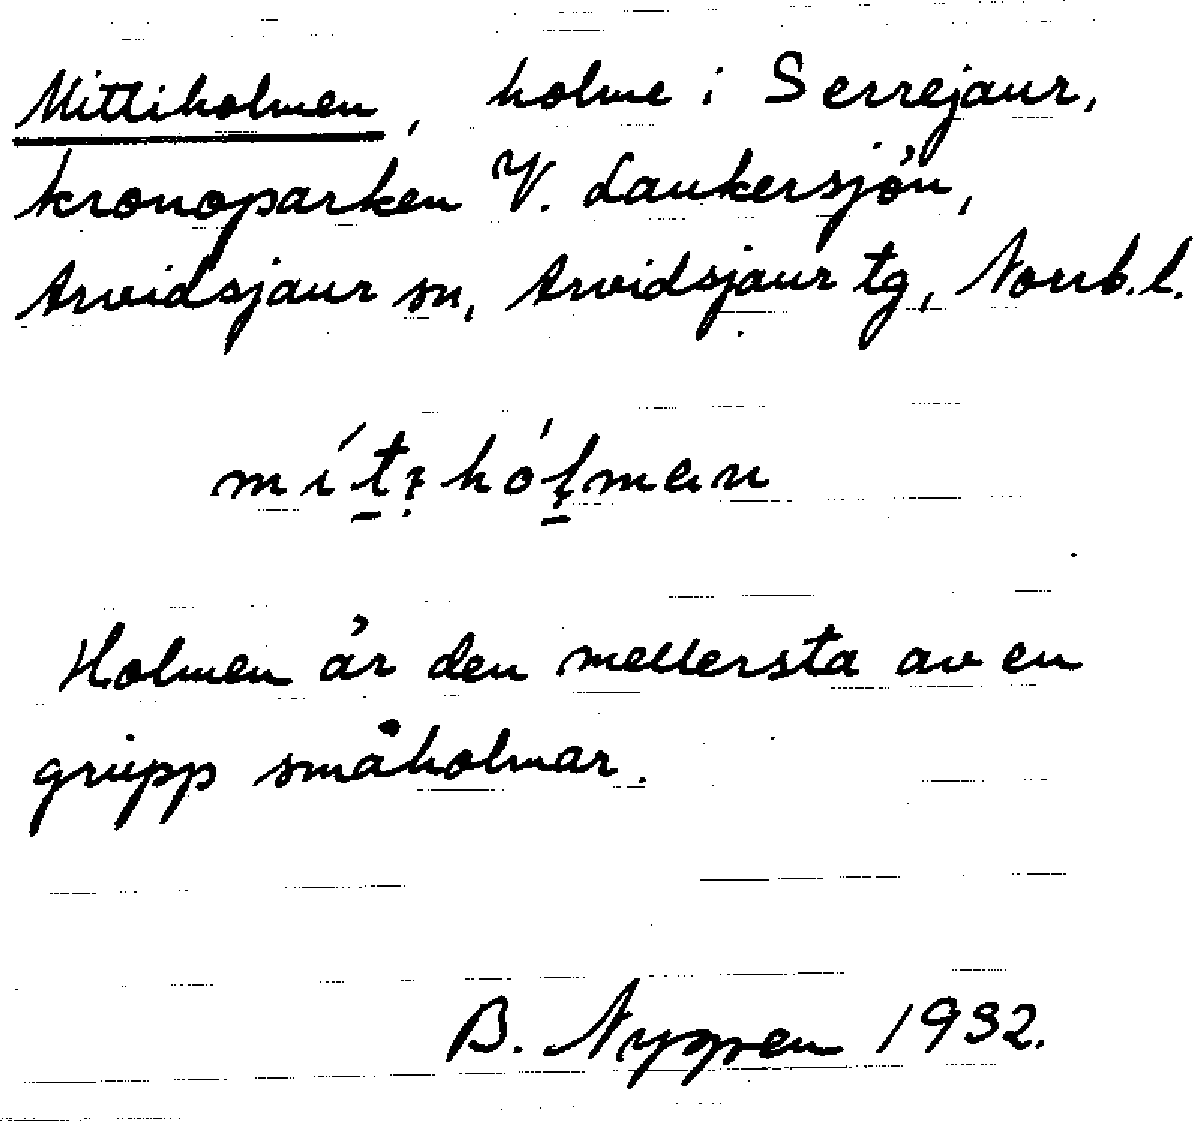 Mittiholmen, holme i Serrejaur,
kronoparken V. Laukersjön,
Arvidsjaur sn, Arvidsjaur tg, Norrb. l.
Holmen är den mellersta av en
grupp småholmar.
B. Nygren 1932.